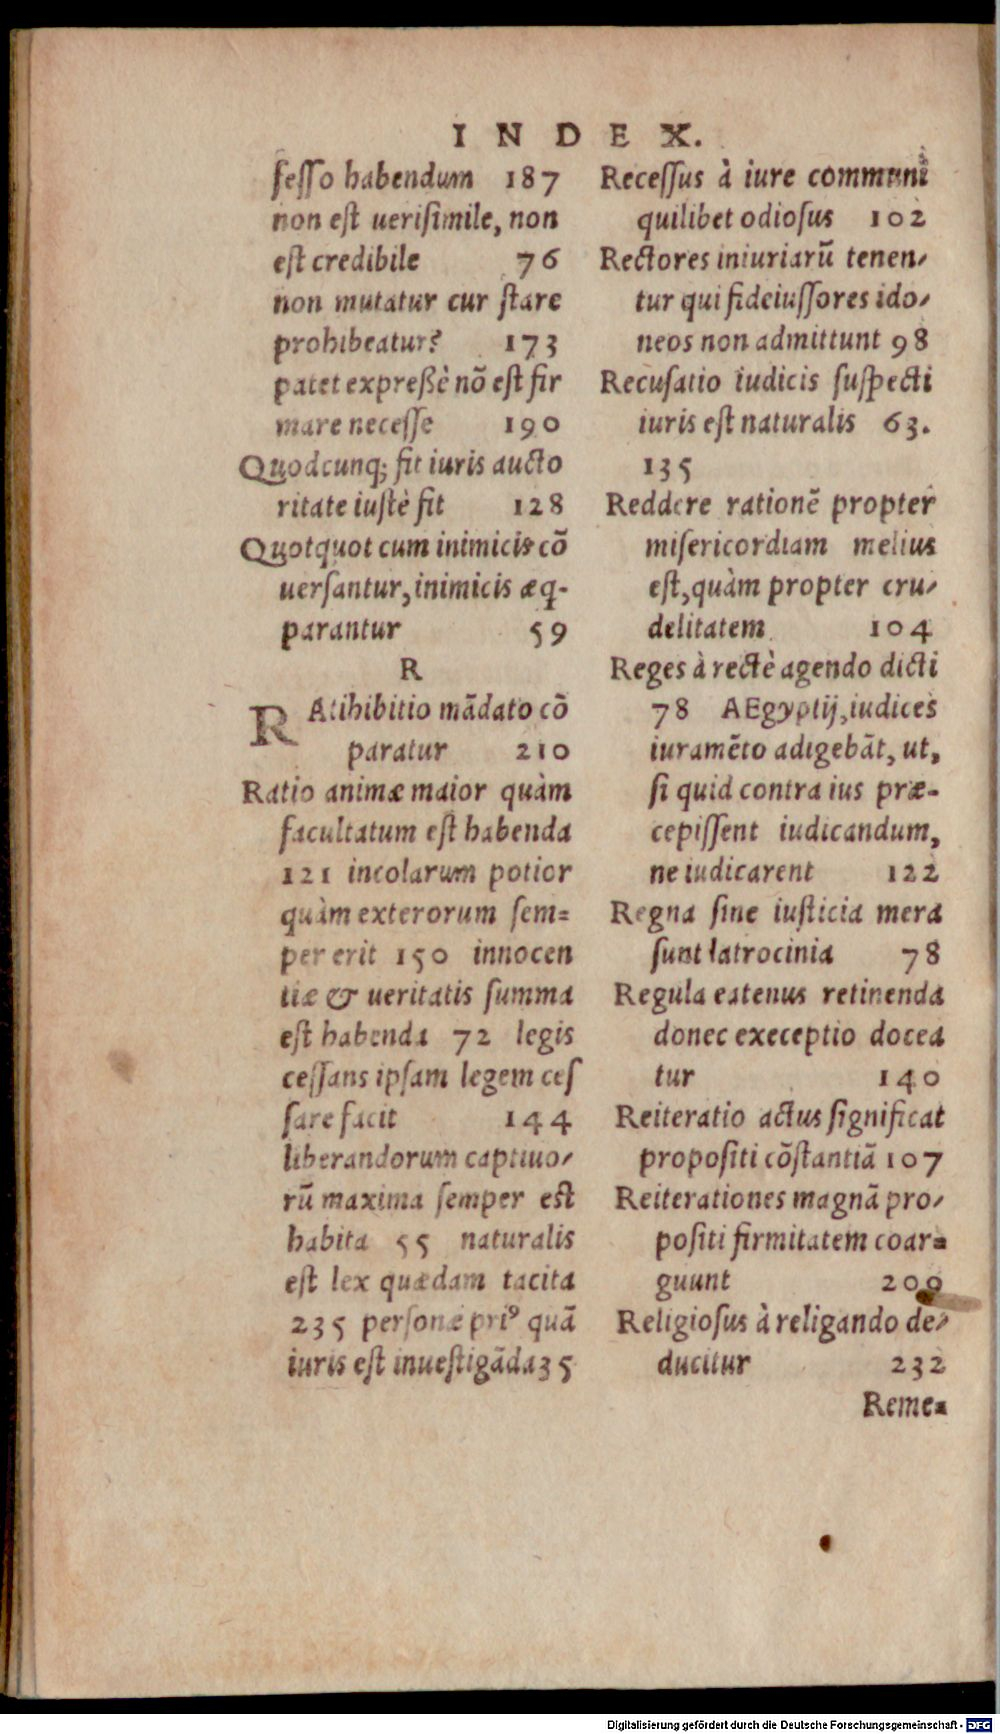 INDEX.
feſſo habendum 187
non eſt ueriſimile, non
eſt credibile 76
non mutatur cur ſtare
prohibeatur? 173
patet expreßè nõ eſt fir
mare neceſſe 190
Quodcunq; fit iuris aucto
ritate iuſtè fit 128
Quotquot cum inimicis cõ
uerſantur, inimicis æq-
parantur 59
R
RAtihibitio mãdato cõ
paratur 210
Ratio animæ maior quàm
facultatum eſt habenda
121 incolarum potior
quàm exterorum ſem=
per erit 150 innocen
tiæ & ueritatis ſumma
eſt habenda 72 legis
ceſſans ipſam legem ceſ
ſare facit 144
liberandorum captiuo-
rũ maxima ſemper eſt
habita 55 naturalis
eſt lex quædam tacita
235 perſonæ pri⁹ quã
iuris eſt inueſtigãda 35
Receſſus à iure communi
quilibet odioſus 102
Rectores iniuriarũ tenen-
tur qui fideiuſſores ido-
neos non admittunt 98
Recuſatio iudicis ſuſpecti
iuris eſt naturalis 63.
135
Reddere rationẽ propter
miſericordiam melius
eſt, quàm propter cru-
delitatem 104
Reges à rectè agendo dicti
78 AEgyptij, iudices
iuramẽto adigebãt, ut,
ſi quid contra ius præ-
cepiſſent iudicandum,
ne iudicarent 122
Regna ſine iuſticia mera
ſunt latrocinia 78
Regula eatenus retinenda
donec execeptio docea
tur 140
Reiteratio actus ſignificat
propoſiti cõſtantiã 107
Reiterationes magnã pro-
poſiti firmitatem coar=
guunt 200
Religioſus à religando de-
ducitur 232
Reme=
Digitalisierung gefördert durch die Deutsche Forschungsgemeinschaft - DFG